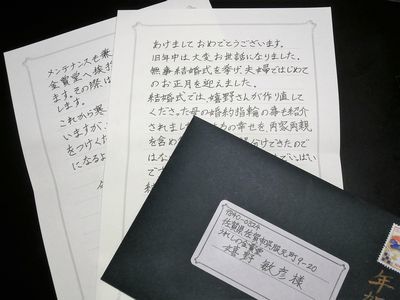 メンテナンスも兼
金賞堂へ
ます。その際は
します。
これから寒
いますが、
をつけくだ
になるよ
あけまして おめでとうございます。
旧年中は大変お世話になりました。
無事結婚式を挙げ、夫婦ではじめて
のお正月を迎えました。
結婚式では、嬉野さんが作り直して
くださった母の婚約指輪の事も紹介
されました。
の幸せを、両家両親
を含め
分けできたので
はな
いっぱい
で
結
〒840-0824
佐賀県佐賀市呉服元町9-20
うれしの金賞堂
嬉野 敏彦 様
年